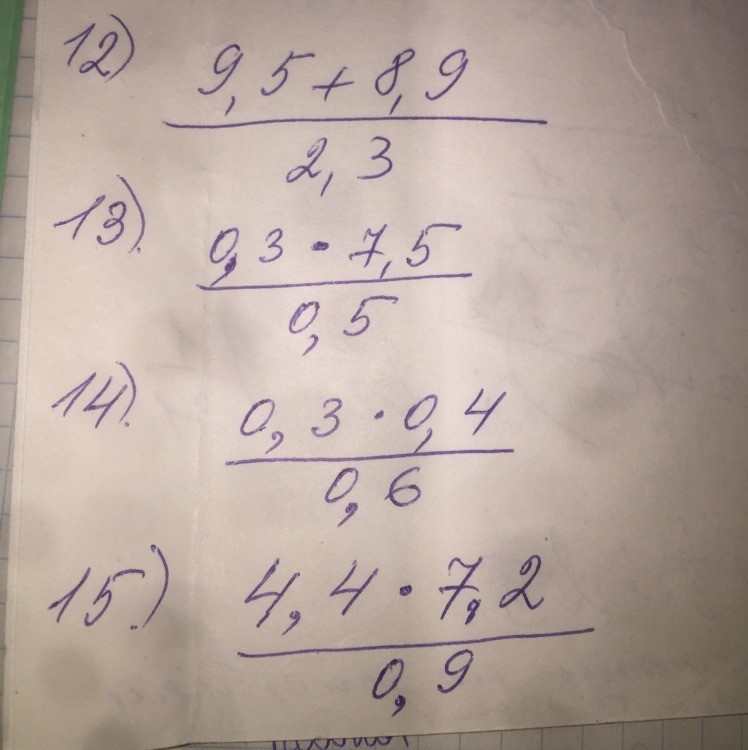 12) 9,5 + 8,9
2,3
13). 0,3 · 7,5
0,5
14). 0,3 · 0,4
0,6
15.) 4,4 · 7,2
0,9